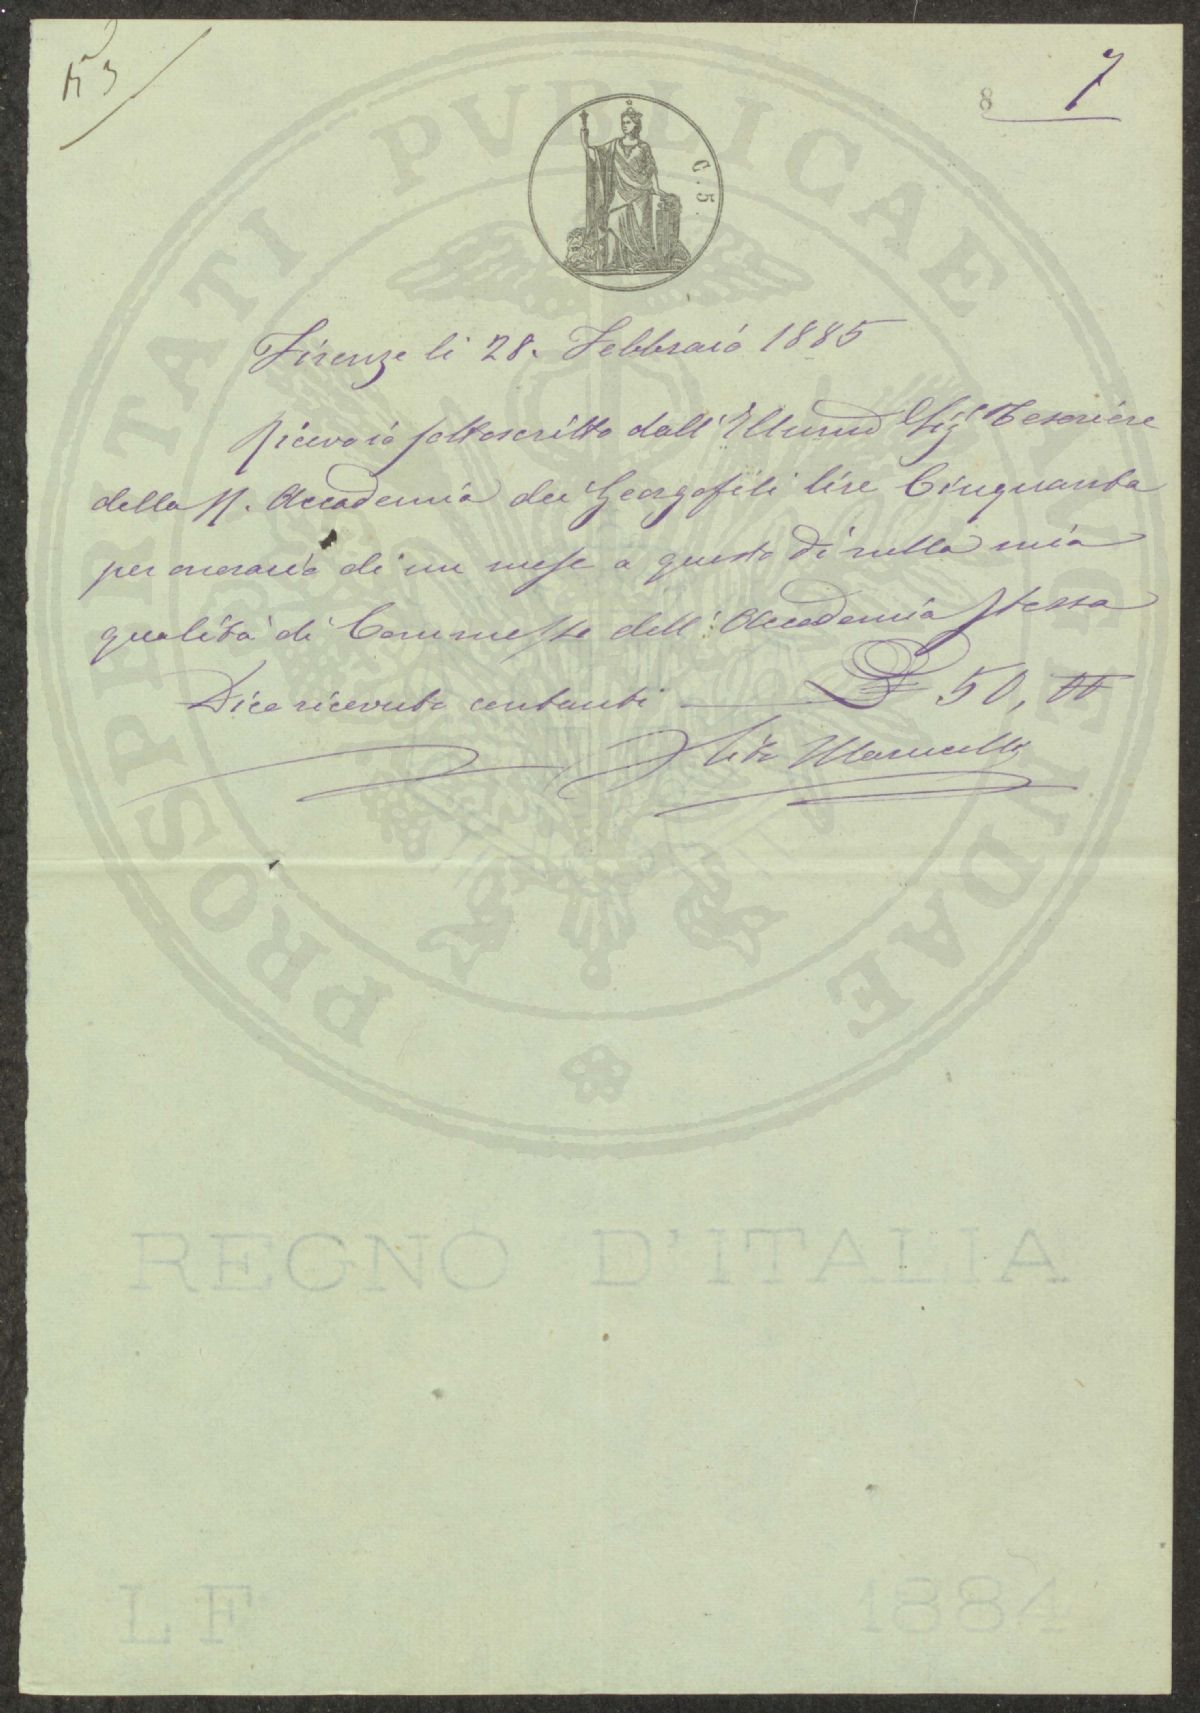 8 7
C. 5.
PROSPERITATI PVBLICAE AVGENDAE
Firenze li 28. Febbraio 1885
Ricevo io sottoscritto dall' Illumo Sigr Tesoriere
della R. Accademia dei Georgofili lire Cinquanta
per onorario di un mese a questo dì nella mia
qualità di Commesso dell' Accademia stessa
Dico ricevute contanti £ 50, 00
Marucelli
REGNO D'ITALIA
LF 1884